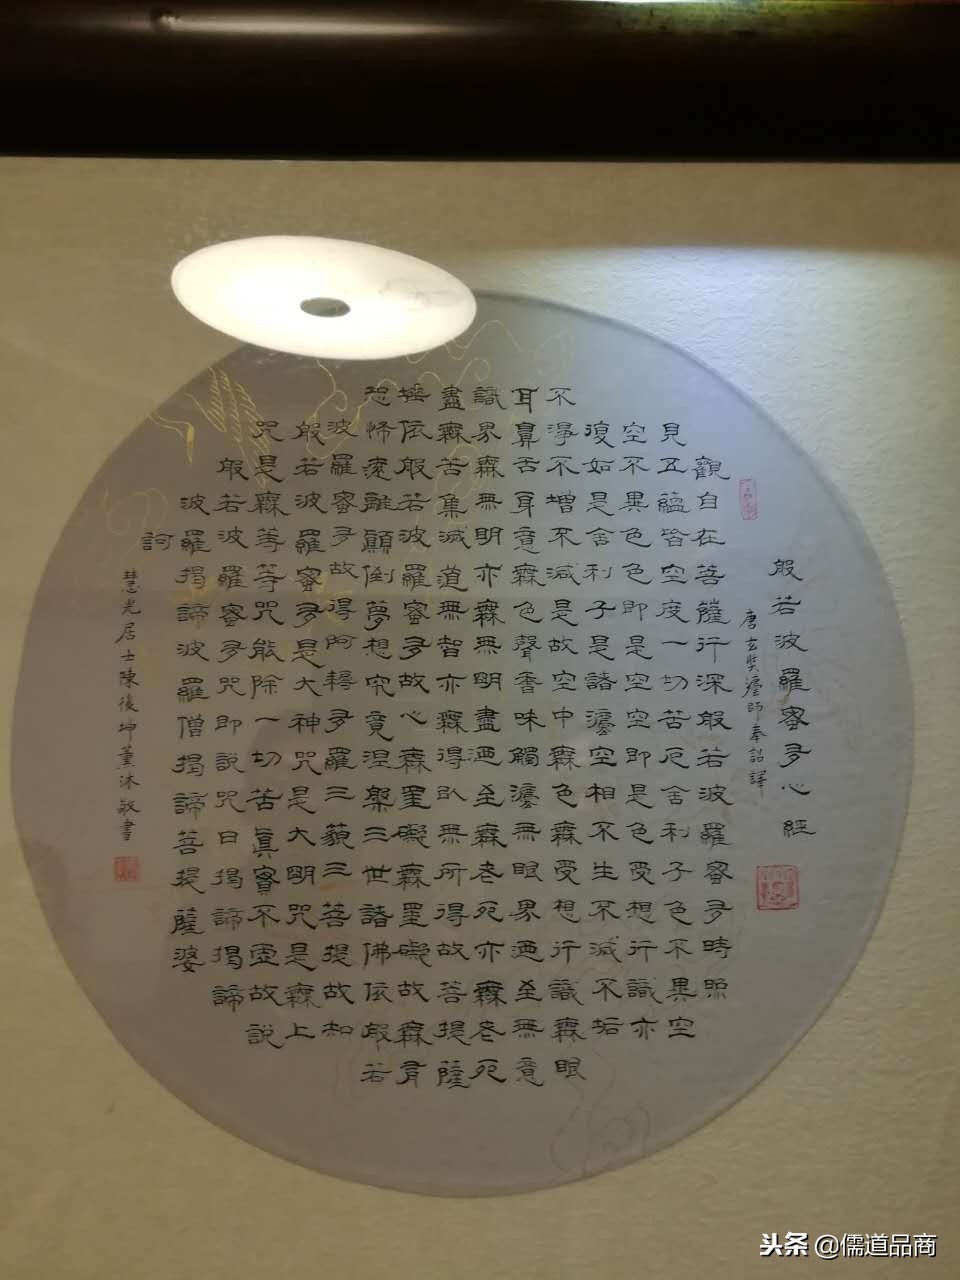 般若波羅蜜多心經
唐玄奘灋師奉詔譯
觀自在菩薩行深般若波羅蜜多時照
見五蘊皆空度一切苦厄舍利子色不異空
空不異色色即是空空即是色受想行識亦
復如是舍利子是諸灋空相不生不滅不垢
不淨不增不減是故空中無色無受想行識無眼
耳鼻舌身意無色聲香味觸灋無眼界迺至無意
識界無無明亦無無明盡迺至無老死亦無老死
盡無苦集滅道無智亦無得以無所得故菩提薩
埵依般若波羅蜜多故心無罣礙無罣礙故無有
恐怖遠離顛倒夢想究竟涅槃三世諸佛依般若
波羅蜜多故得阿耨多羅三藐三菩提故知
般若波羅蜜多是大神咒是大明咒是無上
咒是無等等咒能除一切苦真實不虛故說
般若波羅蜜多咒即說咒曰揭諦揭諦
波羅揭諦波羅僧揭諦菩提薩婆
訶
慧光居士陳後坤薰沐敬書
头条 @儒道品商